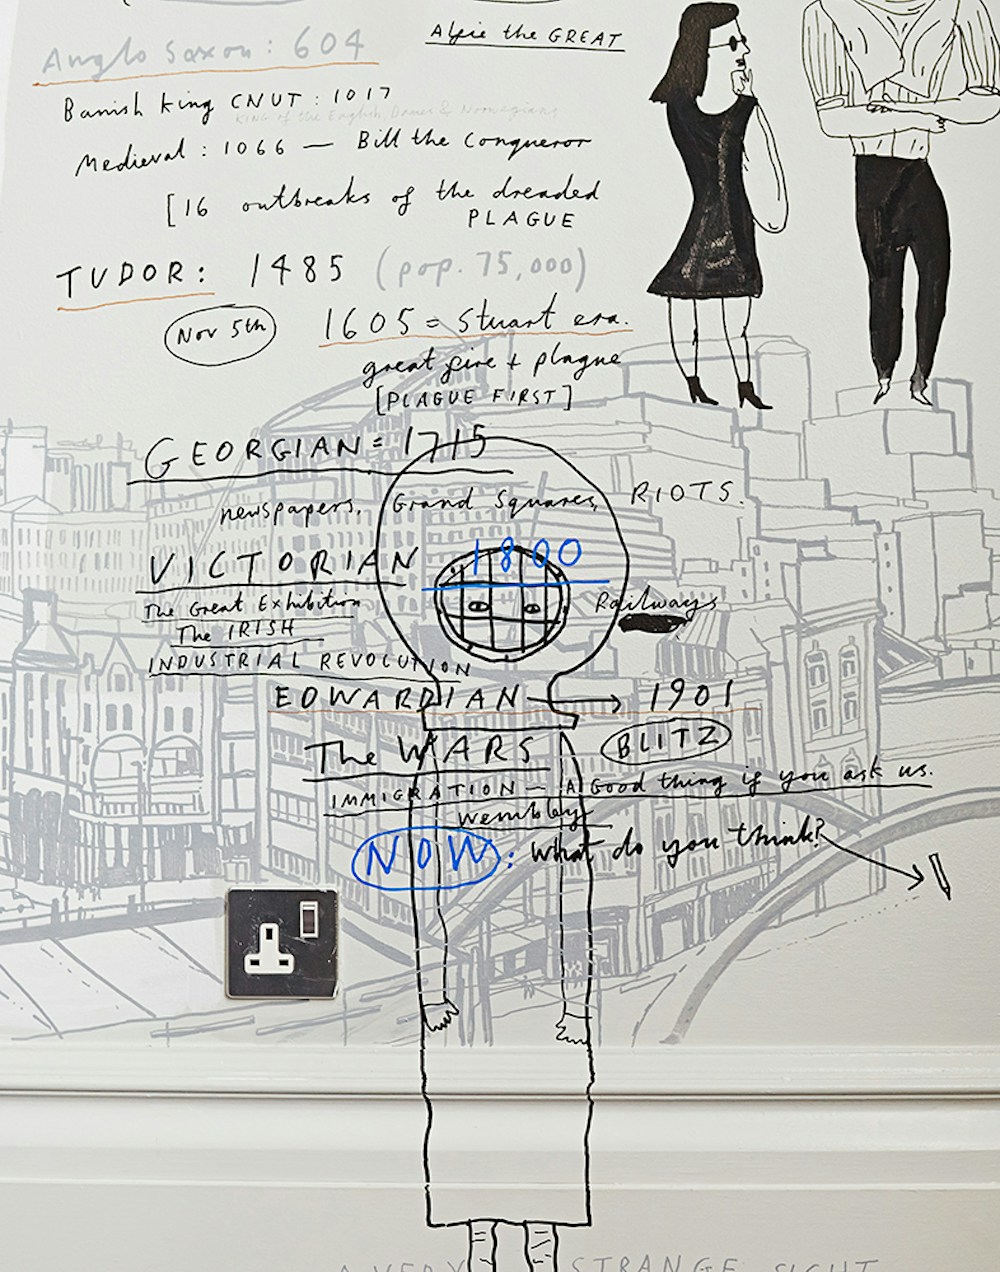 Alfie the GREAT
Anglo Saxon: 604
Danish King CNUT: 1017
KING of the English, Danes & Norwegians
Medieval: 1066 — Bill the Conqueror
[16 outbreaks of the dreaded
PLAGUE
TUDOR: 1485 (pop. 75,000)
Nov 5th 1605 = Stuart era.
great fire + plague
[PLAGUE FIRST]
GEORGIAN = 1715
newspapers, Grand Squares, RIOTS.
VICTORIAN 1800
The Great Exhibition Railways
The IRISH
INDUSTRIAL REVOLUTION
EDWARDIAN → 1901
The WARS BLITZ
IMMIGRATION — A Good thing if you ask us.
Wembley
NOW: What do you think?
A VERY STRANGE SIGHT